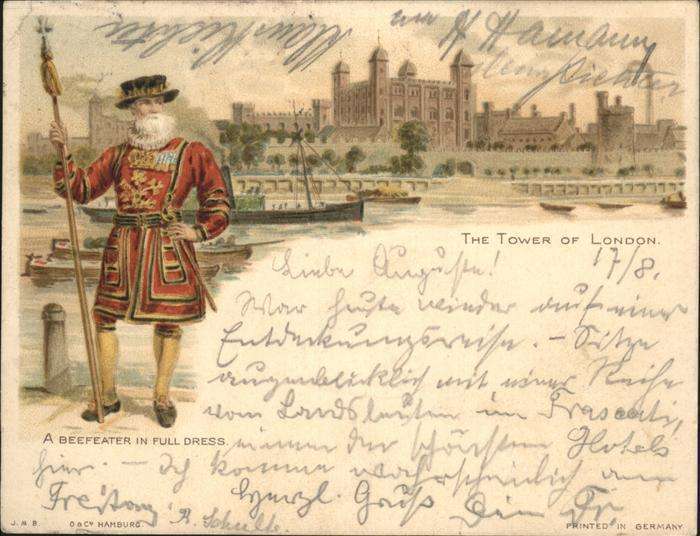 Klaus Richter
H Hamann
Richter
THE TOWER OF LONDON.
17/8.
Liebe Auguste!
War heute wieder auf einer
Entdeckungsreise. – Sitze
augenblicklich mit einer Reihe
von Landsleuten im Frascati,
A BEEFEATER IN FULL DRESS.
einem der schönsten Hotels
hier. – Ich komme wahrscheinlich am
Freitag. Herzl. Gruß Dein Fr.
R. Schulte.
J. M. B. & Co HAMBURG
PRINTED IN GERMANY